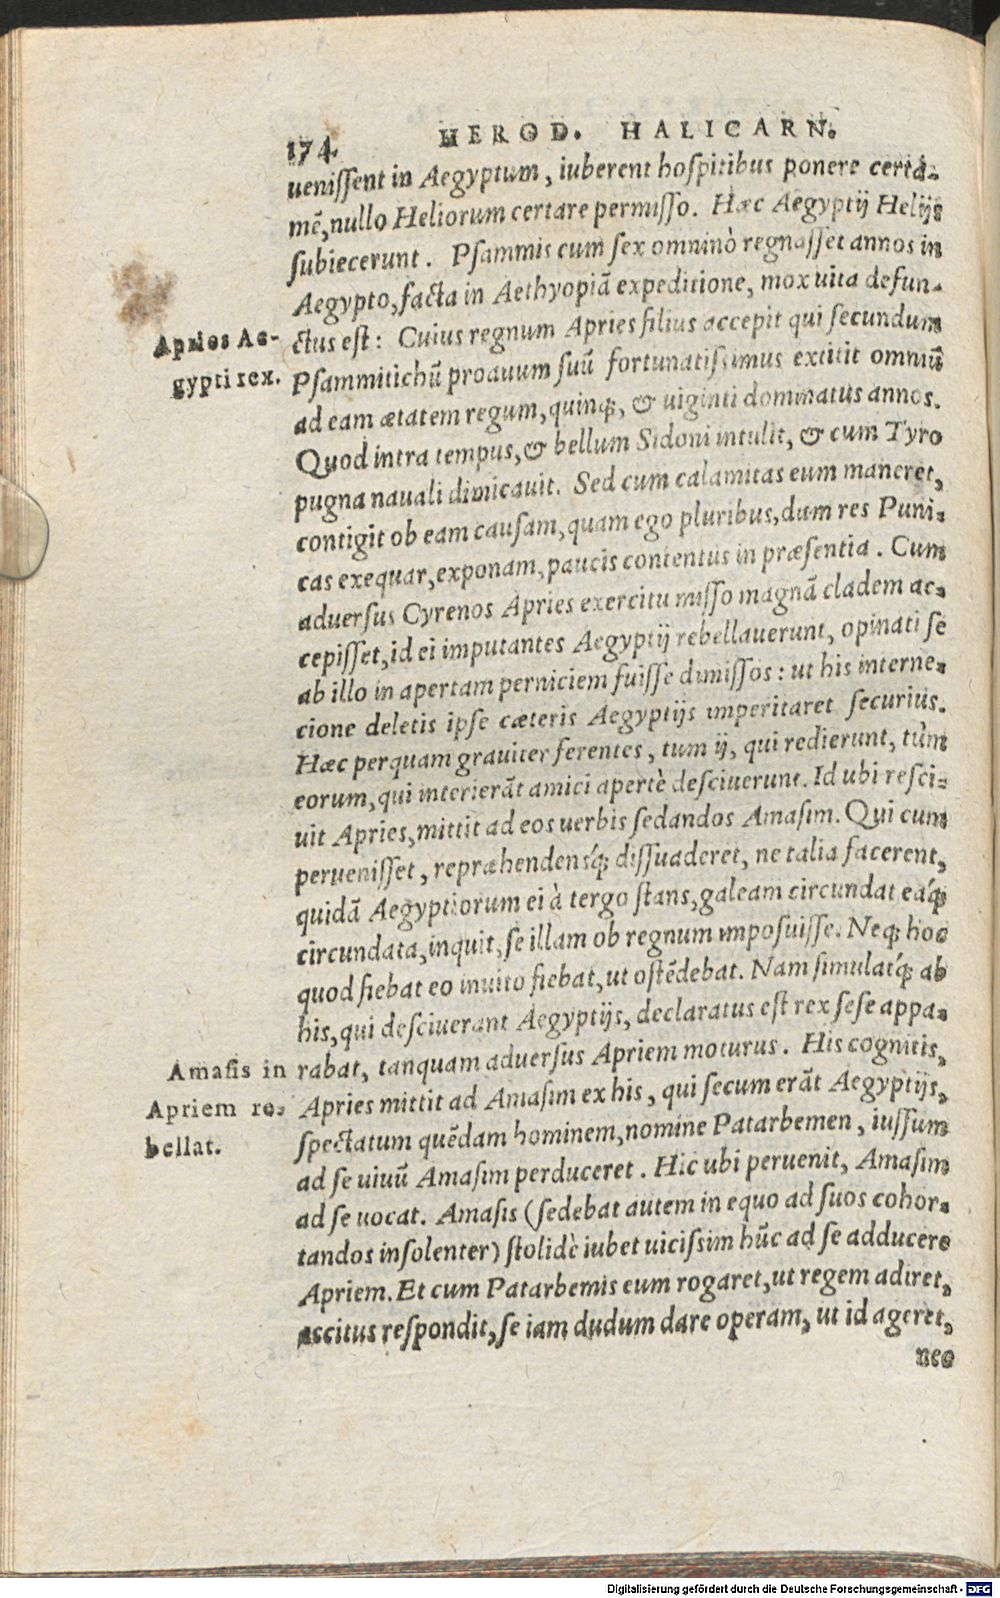 174 HEROD. HALICARN.
uenissent in Aegyptum, iuberent hospitibus ponere certa-
mē, nullo Heliorum certare permisso. Hæc Aegyptij Helijs
subiecerunt. Psammis cum sex omninò regnasset annos in
Aegypto, facta in Aethyopiā expeditione, mox uita defun-
Apries Ae-
gypti rex.
ctus est: Cuius regnum Apries filius accepit qui secundum
Psammitichū proauum suū fortunatissimus extitit omniū
ad eam ætatem regum, quinq;, & uiginti dominatus annos.
Quod intra tempus, & bellum Sidoni intulit, & cum Tyro
pugna nauali dimicauit. Sed cum calamitas eum maneret,
contigit ob eam causam, quam ego pluribus, dum res Puni-
cas exequar, exponam, paucis contentus in præsentia. Cum
aduersus Cyrenos Apries exercitu misso magnā cladem ac-
cepisset, id ei imputantes Aegyptij rebellauerunt, opinati se
ab illo in apertam perniciem fuisse dimissos: ut his interne-
cione deletis ipse cæteris Aegyptijs imperitaret securius.
Hæc perquam grauiter ferentes, tum ij, qui redierunt, tùm
eorum, qui interierāt amici apertè desciuerunt. Id ubi resci-
uit Apries, mittit ad eos uerbis sedandos Amasim. Qui cum
peruenisset, repræhendensq́; dissuaderet, ne talia facerent,
quidā Aegyptiorum ei à tergo stans, galeam circundat eaq́;
circundata, inquit, se illam ob regnum imposuisse. Neq; hoc
quod fiebat eo inuito fiebat, ut ostēdebat. Nam simulatq́; ab
his, qui desciuerant Aegyptijs, declaratus est rex sese appa-
Amasis in
Apriem re-
bellat.
rabat, tanquam aduersus Apriem moturus. His cognitis,
Apries mittit ad Amasim ex his, qui secum erāt Aegyptijs,
spectatum quēdam hominem, nomine Patarbemen, iussum
ad se uiuū Amasim perduceret. Hic ubi peruenit, Amasim
ad se uocat. Amasis (sedebat autem in equo ad suos cohor-
tandos insolenter) stolidè iubet uicissim hūc ad se adducere
Apriem. Et cum Patarbemis eum rogaret, ut regem adiret,
accitus respondit, se iam dudum dare operam, ut id ageret,
nec
Digitalisierung gefördert durch die Deutsche Forschungsgemeinschaft - DFG